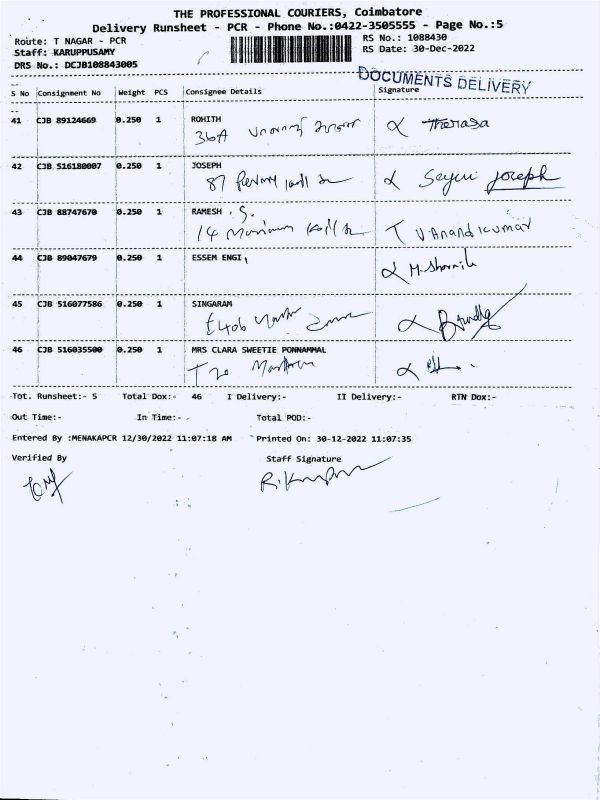 THE PROFESSIONAL COURIERS, Coimbatore
Delivery Runsheet - PCR - Phone No.:0422-3505555 - Page No.:5
Route: T NAGAR - PCR RS No.: 1088430
Staff: KARUPPUSAMY RS Date: 30-Dec-2022
DRS No.: DCJB108843005
DOCUMENTS DELIVERY
S No Consignment No Weight PCS Consignee Details Signature
41 CJB 89124669 0.250 1 ROHITH
36A Therasa
42 CJB 516180007 0.250 1 JOSEPH
87 Joseph
43 CJB 88747670 0.250 1 RAMESH . S.
14 V Anandkumar
44 CJB 89047679 0.250 1 ESSEM ENGI
M. Sharmila
45 CJB 516077586 0.250 1 SINGARAM
E406
46 CJB 516035500 0.250 1 MRS CLARA SWEETIE PONNAMMAL
T 20
Tot. Runsheet:- 5 Total Dox:- 46 I Delivery:- II Delivery:- RTN Dox:-
Out Time:- In Time:- Total POD:-
Entered By :MENAKAPCR 12/30/2022 11:07:18 AM Printed On: 30-12-2022 11:07:35
Verified By Staff Signature